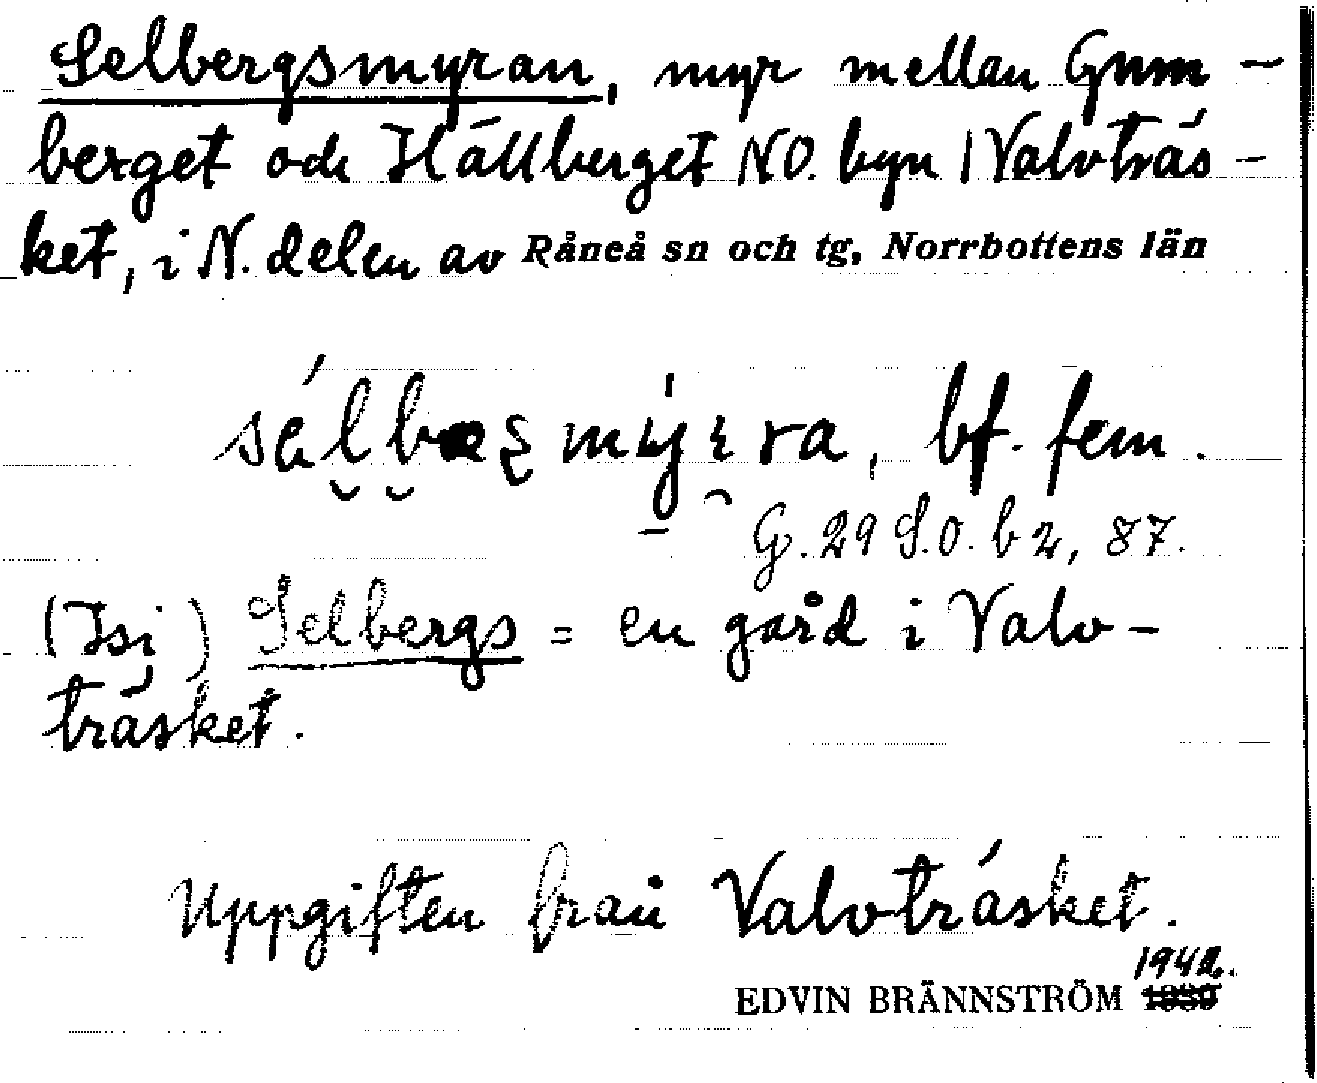 Selbergsmyran, myr mellan Gnm-
berget och Hällberget NO. byn Valvträs-
ket, i N. delen av Råneå sn och tg, Norrbottens län
bf. fem.
G. 29 S.O. b 2, 87.
(Isi) Selbergs = en gård i Valv-
träsket.
Uppgiften från Valvträsket.
1942.
EDVIN BRÄNNSTRÖM 1939